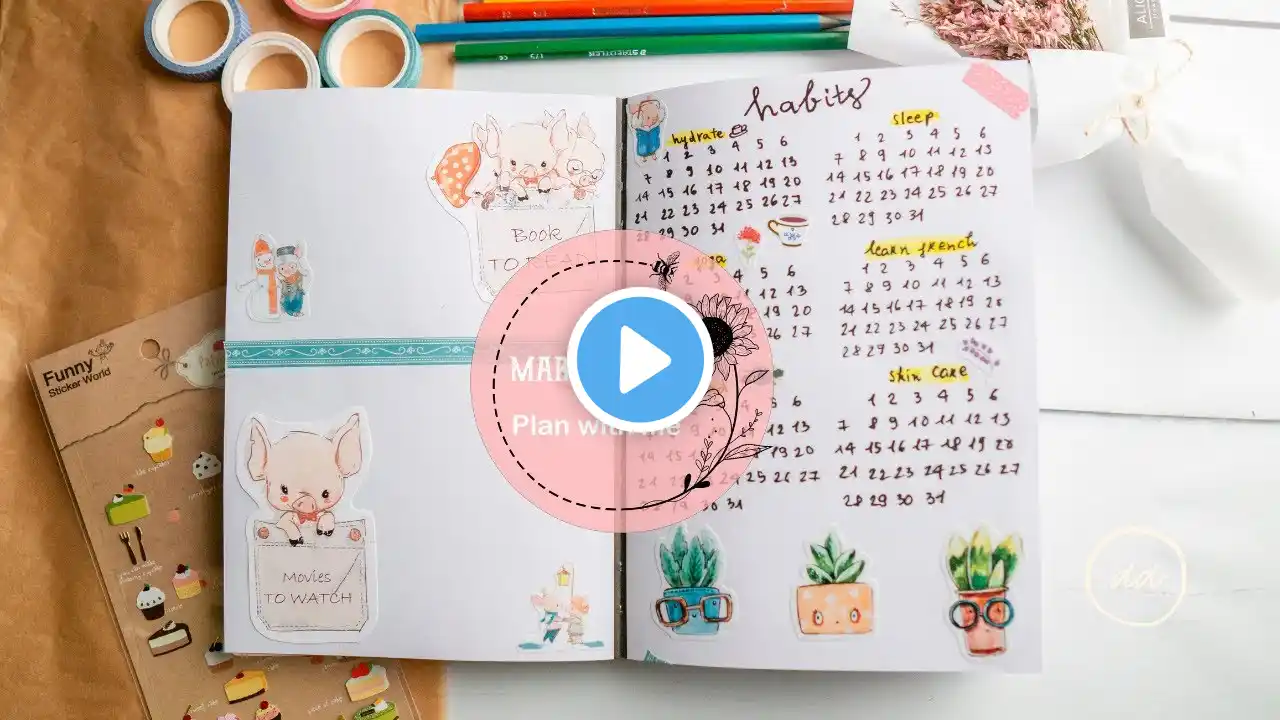 Funny
Sticker World
Book
TO READ
Movies
TO WATCH
STAEDTLER
habits
hydrate
1 2 3 4 5 6
7 8 9 10 11 12 13
14 15 16 17 18 19 20
21 22 23 24 25 26 27
28 29 30 31
yoga
2 3 4 5 6
12 13
20
26 27
Plan with me
12 13
19 20
24 25 26 27
30 31
sleep
1 2 3 4 5 6
7 8 9 10 11 12 13
14 15 16 17 18 19 20
21 22 23 24 25 26 27
28 29 30 31
learn french
1 2 3 4 5 6
7 8 9 10 11 12 13
14 15 16 17 18 19 20
21 22 23 24 25 26 27
28 29 30 31
skin care
1 2 3 4 5 6
7 8 9 10 11 12 13
14 15 16 17 18 19 20
21 22 23 24 25 26 27
28 29 30 31